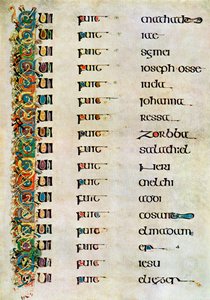 Qui fuit
Qui fuit iae
Qui fuit semei
Qui fuit ioseph osse
Qui fuit iuda
Qui fuit iohanna
Qui fuit ressa
Qui fuit zorbba
Qui fuit salathiel
Qui fuit neri
Qui fuit melchi
Qui fuit addi
Qui fuit cosam
Qui fuit elmadam
Qui fuit er
Qui fuit iesu
Qui fuit eliezer